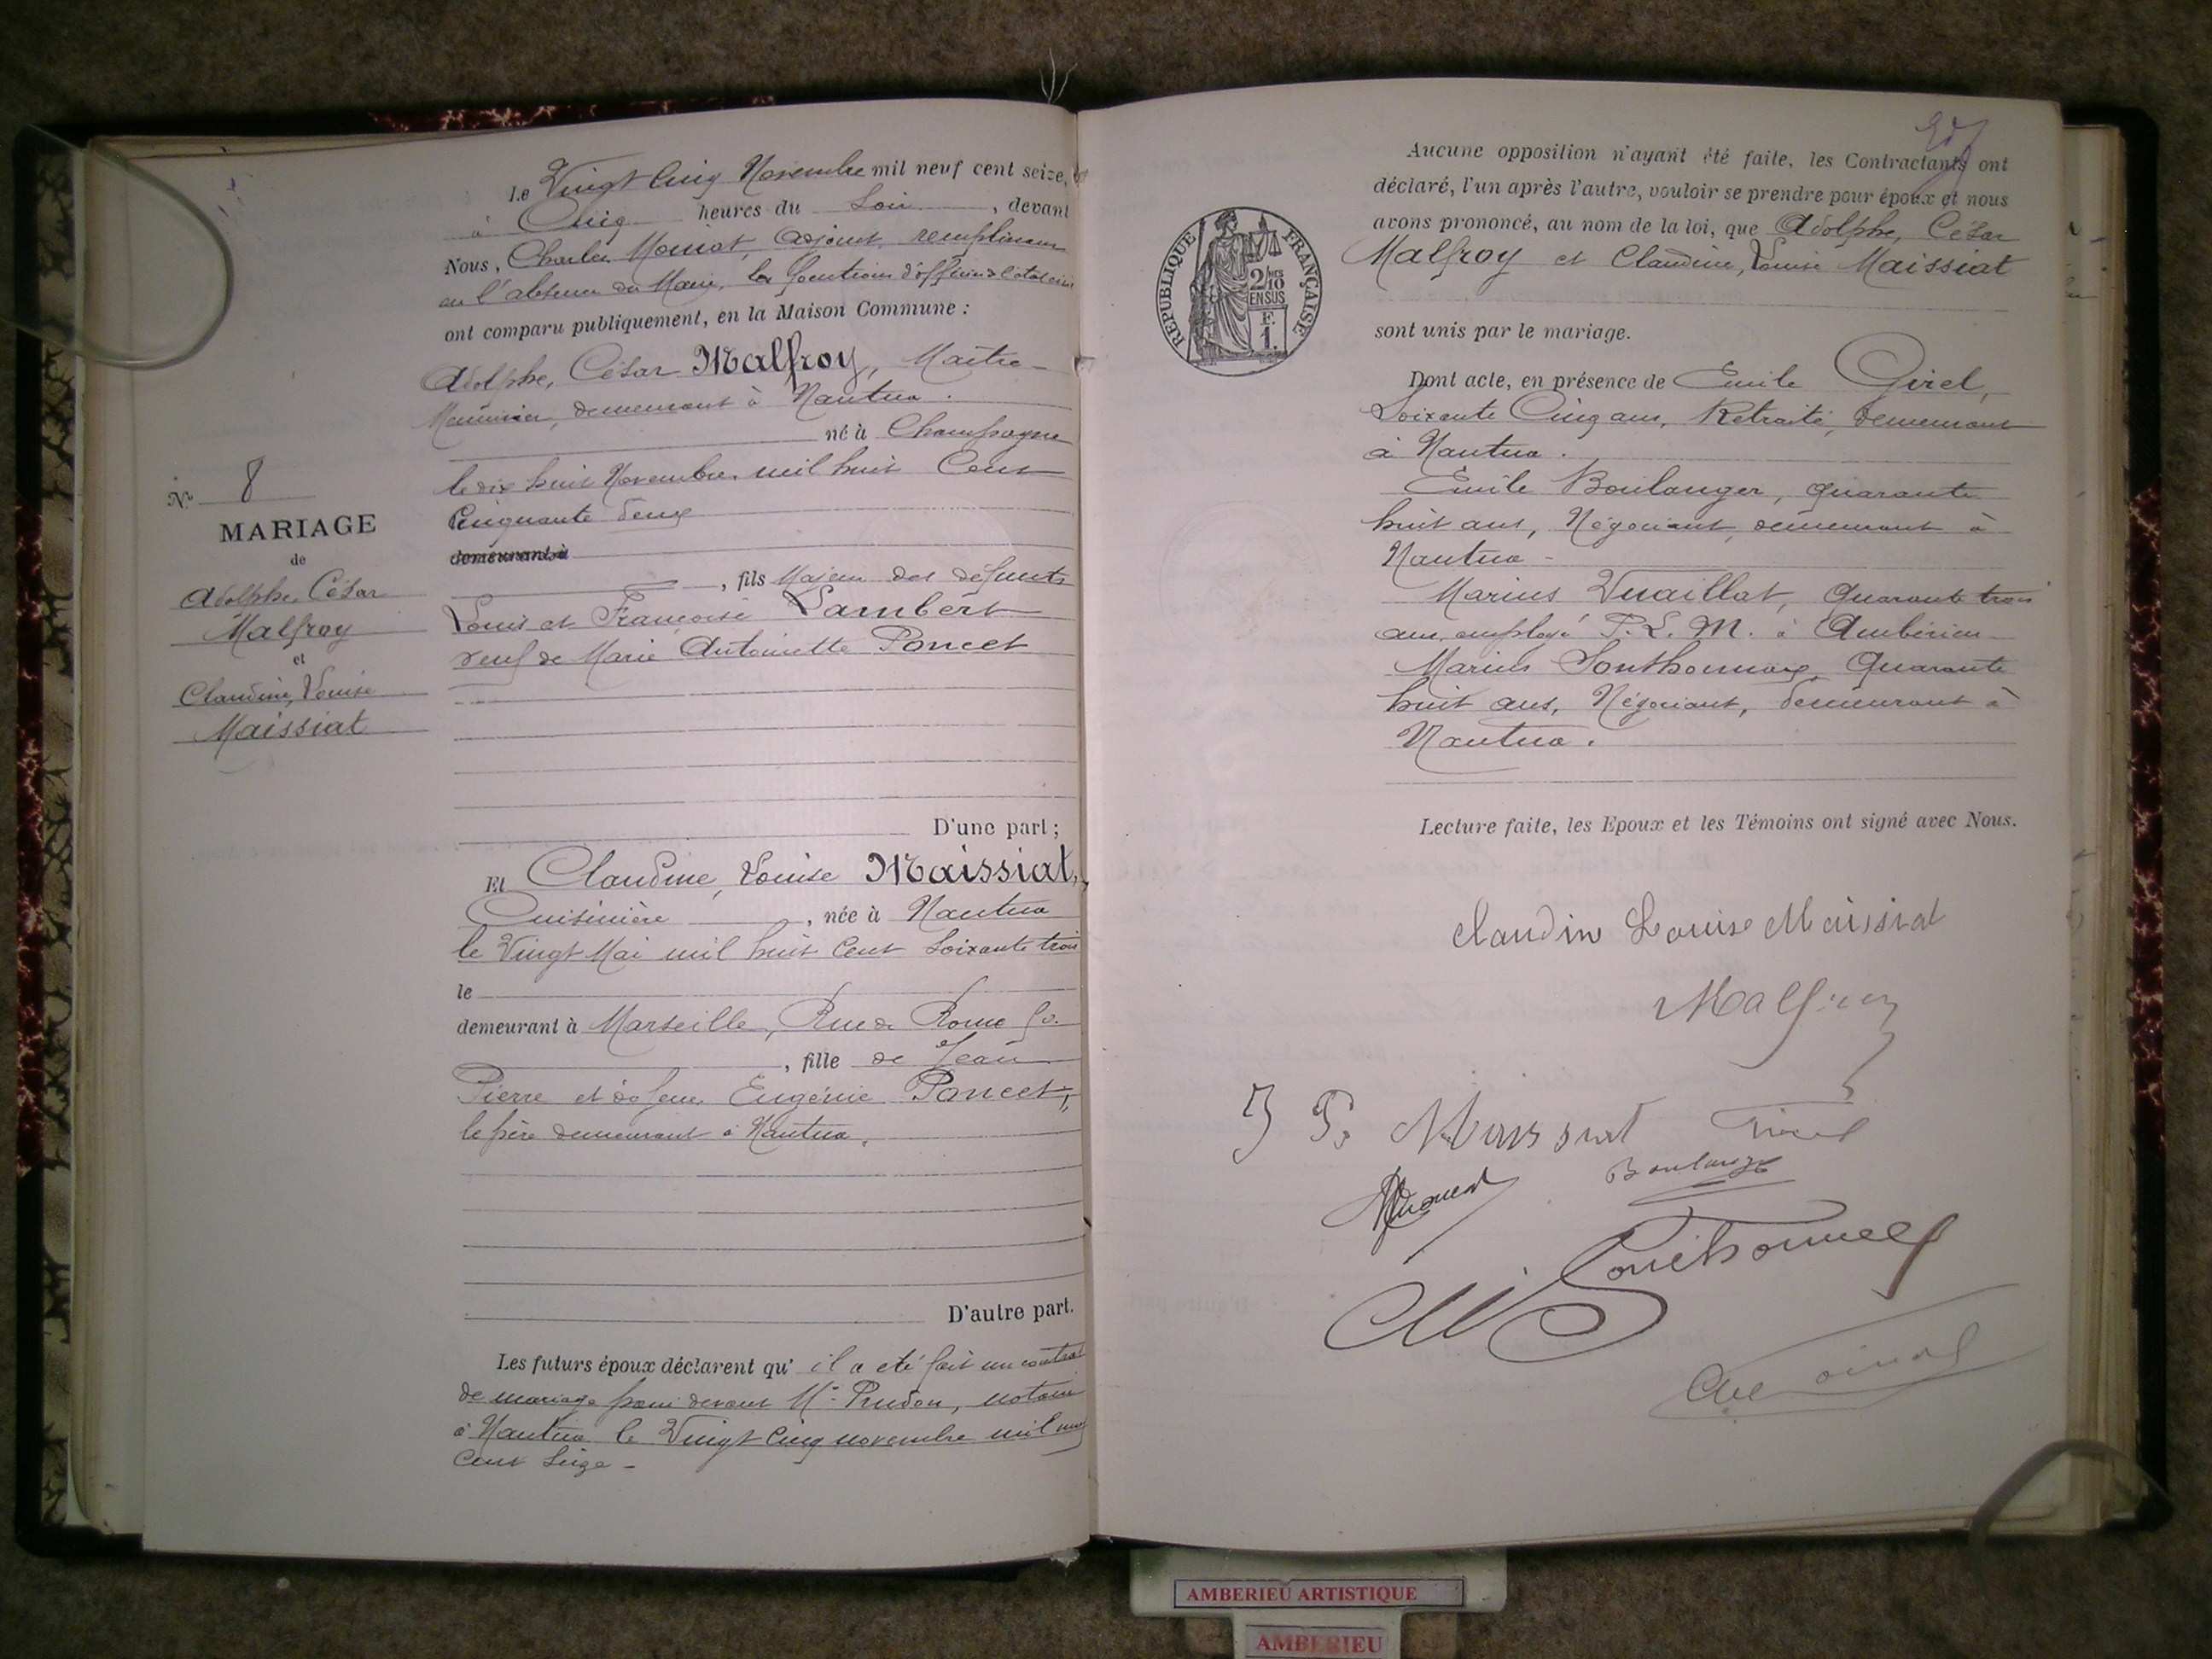 N° 8
MARIAGE
de
Adolphe, César
Malfroy
et
Claudine, Louise
Maissiat
Le Vingt Cinq Novembre mil neuf cent seize,
à Cinq heures du Soir, devant
Nous, Charles Moinat, adjoint, remplissant
en l'absence du Maire, les fonctions d'officier de l'état civil
ont comparu publiquement, en la Maison Commune :
Adolphe, César Malfroy, Maître-
Meunier, demeurant à Nantua.
né à Champagne
le dix huit Novembre, mil huit Cent
Cinquante deux
demeurant à
, fils Majeur des défunts
Louis et Françoise Lambert
veuf de Marie Antoinette Poncet
D'une part ;
Et Claudine, Louise Maissiat,
Cuisinière, née à Nantua
le Vingt Mai mil huit Cent Soixante trois
le
demeurant à Marseille, Rue de Rome
, fille de Jean
Pierre et de feue Eugénie Poncet,
le père demeurant à Nantua.
D'autre part.
Les futurs époux déclarent qu' il a été fait un contrat
de mariage par devant Me Prudon, notaire
à Nantua le Vingt Cinq novembre mil neuf
Cent Seize -
Aucune opposition n'ayant été faite, les Contractants ont
déclaré, l'un après l'autre, vouloir se prendre pour époux et nous
avons prononcé, au nom de la loi, que Adolphe, César
Malfroy et Claudine, Louise Maissiat
sont unis par le mariage.
RÉPUBLIQUE FRANÇAISE
2/10
EN SUS
F.
1.
Dont acte, en présence de Emile Girel,
Soixante Cinq ans, Retraité, demeurant
à Nantua.
Emile Boulanger, quarante
huit ans, Négociant, demeurant à
Nantua -
Marius Vuaillat, Quarante trois
ans, employé P. L. M. à Ambérieu
Marius Sonthonnax, Quarante
huit ans, Négociant, demeurant à
Nantua.
Lecture faite, les Epoux et les Témoins ont signé avec Nous.
Claudin Louise Maissiat
Malfroy
J P. Maissiat Girel
Boulanger
Sonthonnax
AMBERIEU ARTISTIQUE
AMBERIEU